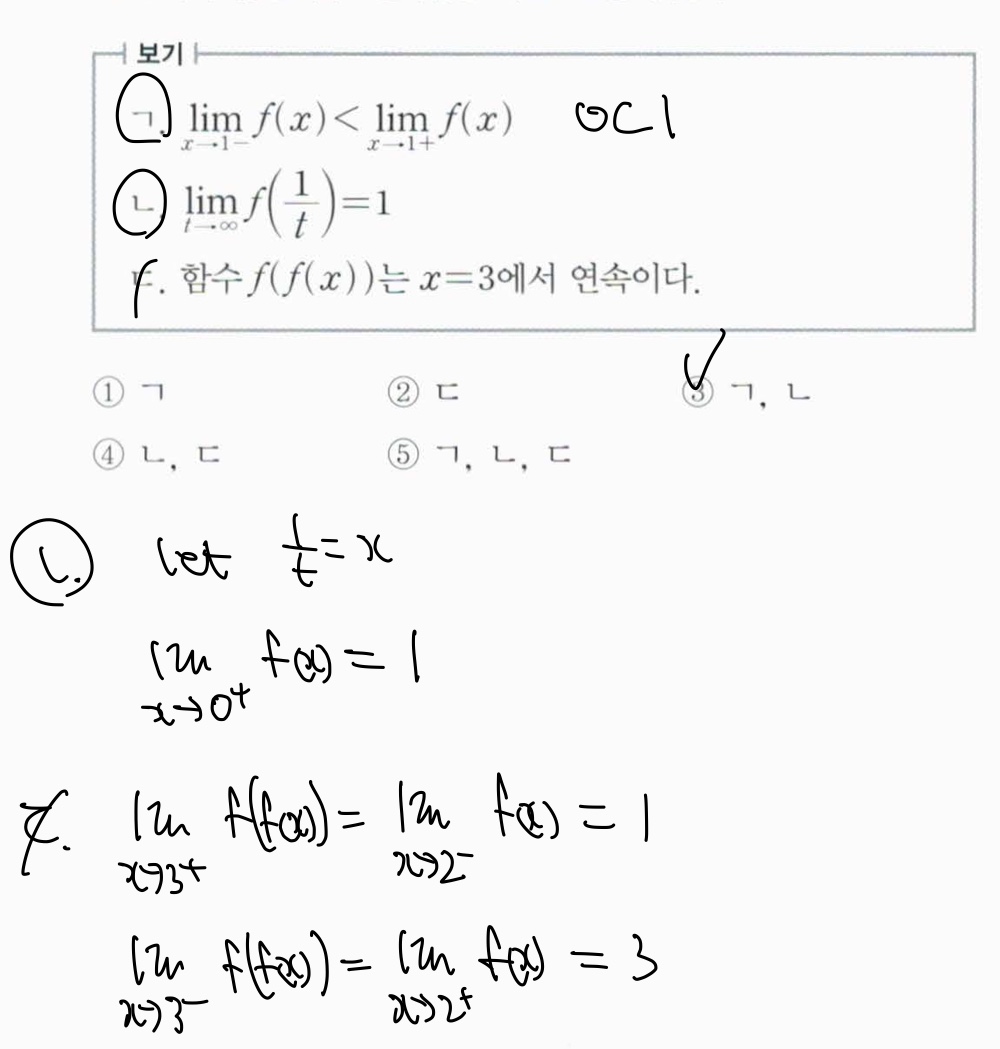 보기
ㄱ. lim_{x→1-} f(x) < lim_{x→1+} f(x) 0<1
ㄴ. lim_{t→∞} f(1/t)=1
ㄷ. 함수 f(f(x))는 x=3에서 연속이다.
① ㄱ ② ㄷ ③ ㄱ, ㄴ
④ ㄴ, ㄷ ⑤ ㄱ, ㄴ, ㄷ
ㄴ. let 1/t = x
lim_{x→0+} f(x) = 1
ㄷ. lim_{x→3+} f(f(x)) = lim_{x→2-} f(x) = 1
lim_{x→3-} f(f(x)) = lim_{x→2+} f(x) = 3